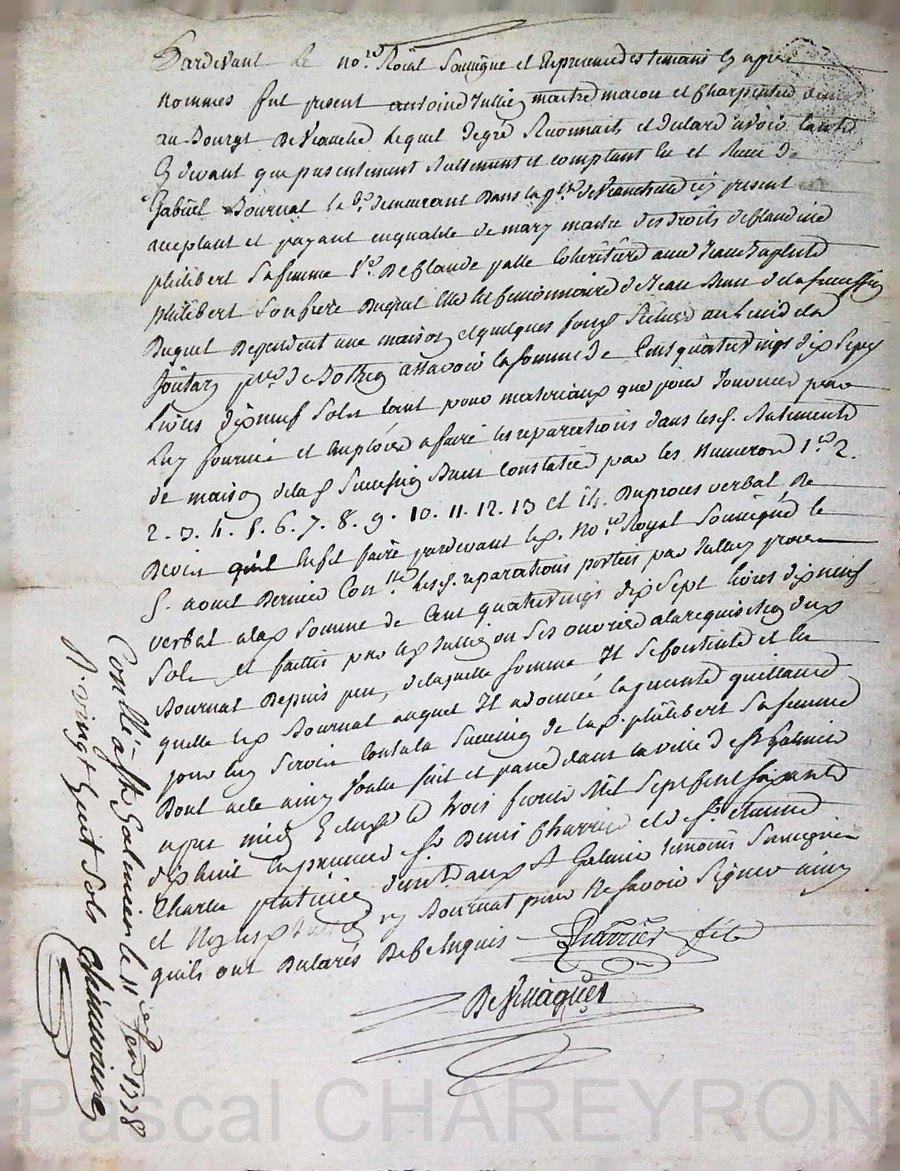 Pardevant le no.re Roial Soussigne et En presence des temoins Cy apres
nommes fut present antoine Jullien maitre macon et Charpentier
au Bourgt De Veauche lequel De gré Reconnait et declare avoir
Cy devant que presentement Reellement et comptant Eu et Receu de
Gabriel Bournat le B. demeurant Dans la p.sse de Veauchette icy present
acceptant et payant en qualité de mary maitre des droits de Claudine
philibert sa femme Coheritiere avec Jean Baptiste
philibert son frere Duquel Elle Est de Jean de la succession
Duquel Dependent une maison et quelques fonds Situés au de la
p.sse de Bothéon assavoir la somme de Cent quatrevingt dix Sept
livres dix neuf Sols tant pour materiaux que pour Journées par
luy fournis et Emploiés a faire les reparations dans les d. Batiments
de maison de la d. Succession Constatées par les Numeros 1.er 2.
2. 3. 4. 5. 6. 7. 8. 9. 10. 11. 12. 13 et 14. Du proces verbal De
Devis qu'il En fit faire pardevant le d. No.re Royal Soussigné le
aout Dernier Con.llé les d. reparations portées par Iceluy proces
verbal a la d. Somme de Cent quatrevingt dix Sept livres dix neuf
Sols et faittes par le d. Jullien ou Ses ouvriers a la requisition du d.
Bournat Depuis peu, de laquelle somme Il Se Contente et En
quitte le d. Bournat auquel Il a donné la presente quittance
pour luy Servir Contre la Succession de la d. philibert Sa femme
Dont acte ainsy Voulu fait et passé dans la ville de St. Galmier
apres midy le trois fevrier Mil Sept Cent Soixante
dix huit En presence de Sr. Denis Charrier et de Sr. Etienne
Charles praticiens dem.t aud. St Galmier temoins Soussignés
et Non les d. Jullien ny Bournat pour Ne Savoir Signer ainsy
qu'ils ont Declarés De ce Enquis
Charrier fils
Desmagues
Con.llé a St Galmier le 11 fevr 1778
R. vingt huit Sols
Pascal CHAREYRON